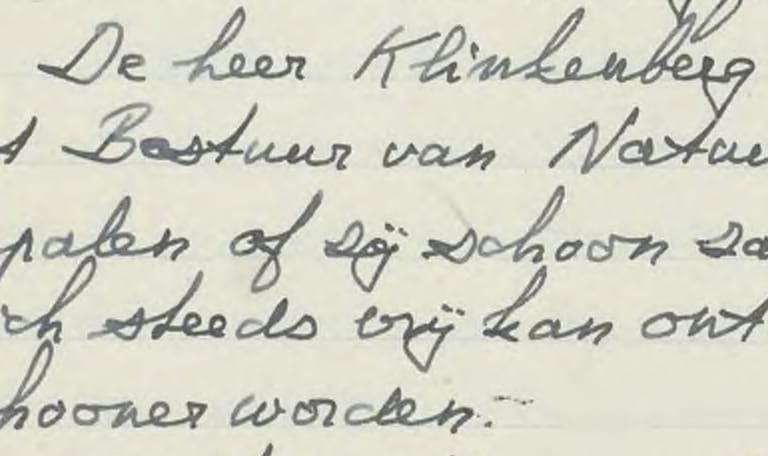 De heer Klinkenberg
t Bestuur van Natuu
palen of zij schoon za
ch steeds vrij kan ont
hooner worden.